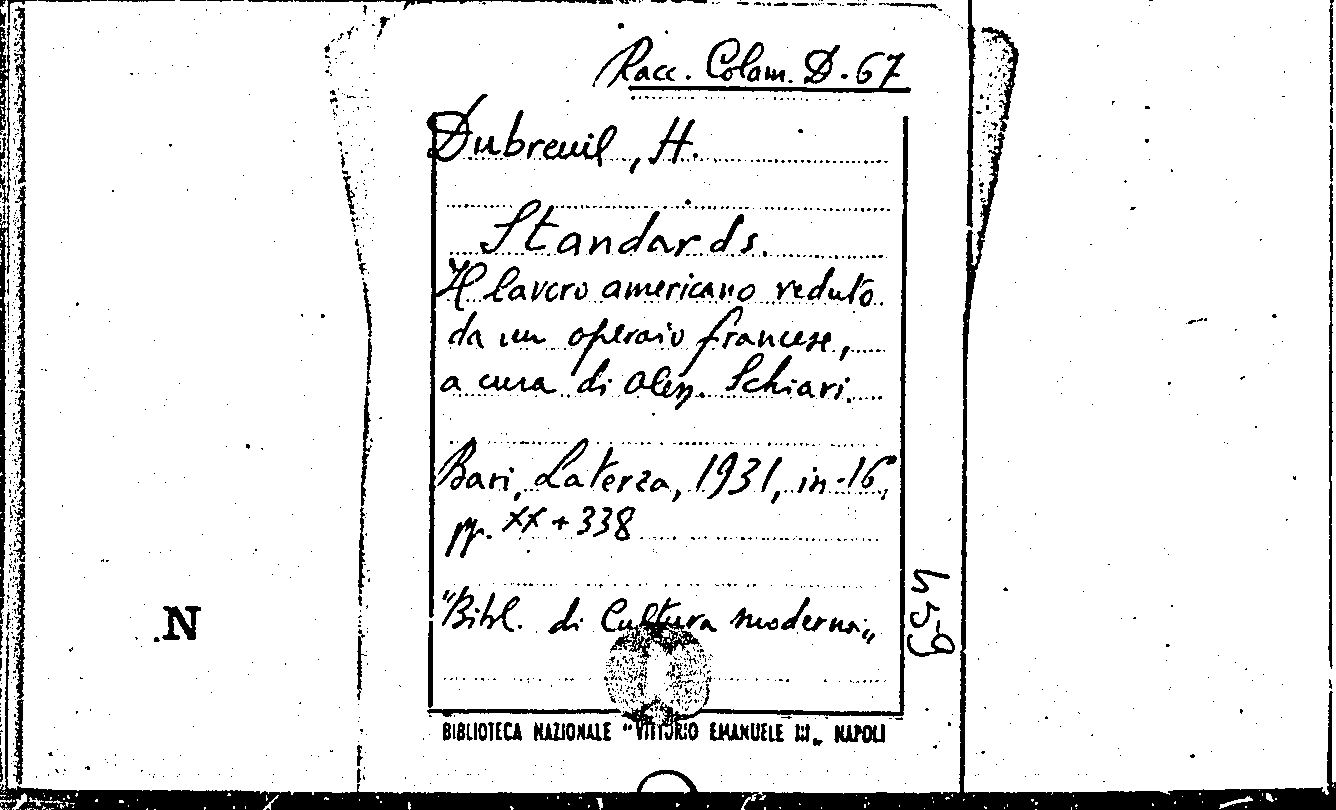 Racc. Colam. D-67
Dubreuil, H.
Standards.
Il lavoro americano veduto
da un operaio francese,
a cura di Aless. Schiavi.
Bari, Laterza, 1931, in-16°,
pp. XX+338
"Bibl. di Cultura moderna„
N
459
BIBLIOTECA NAZIONALE "VITTORIO EMANUELE III„ NAPOLI